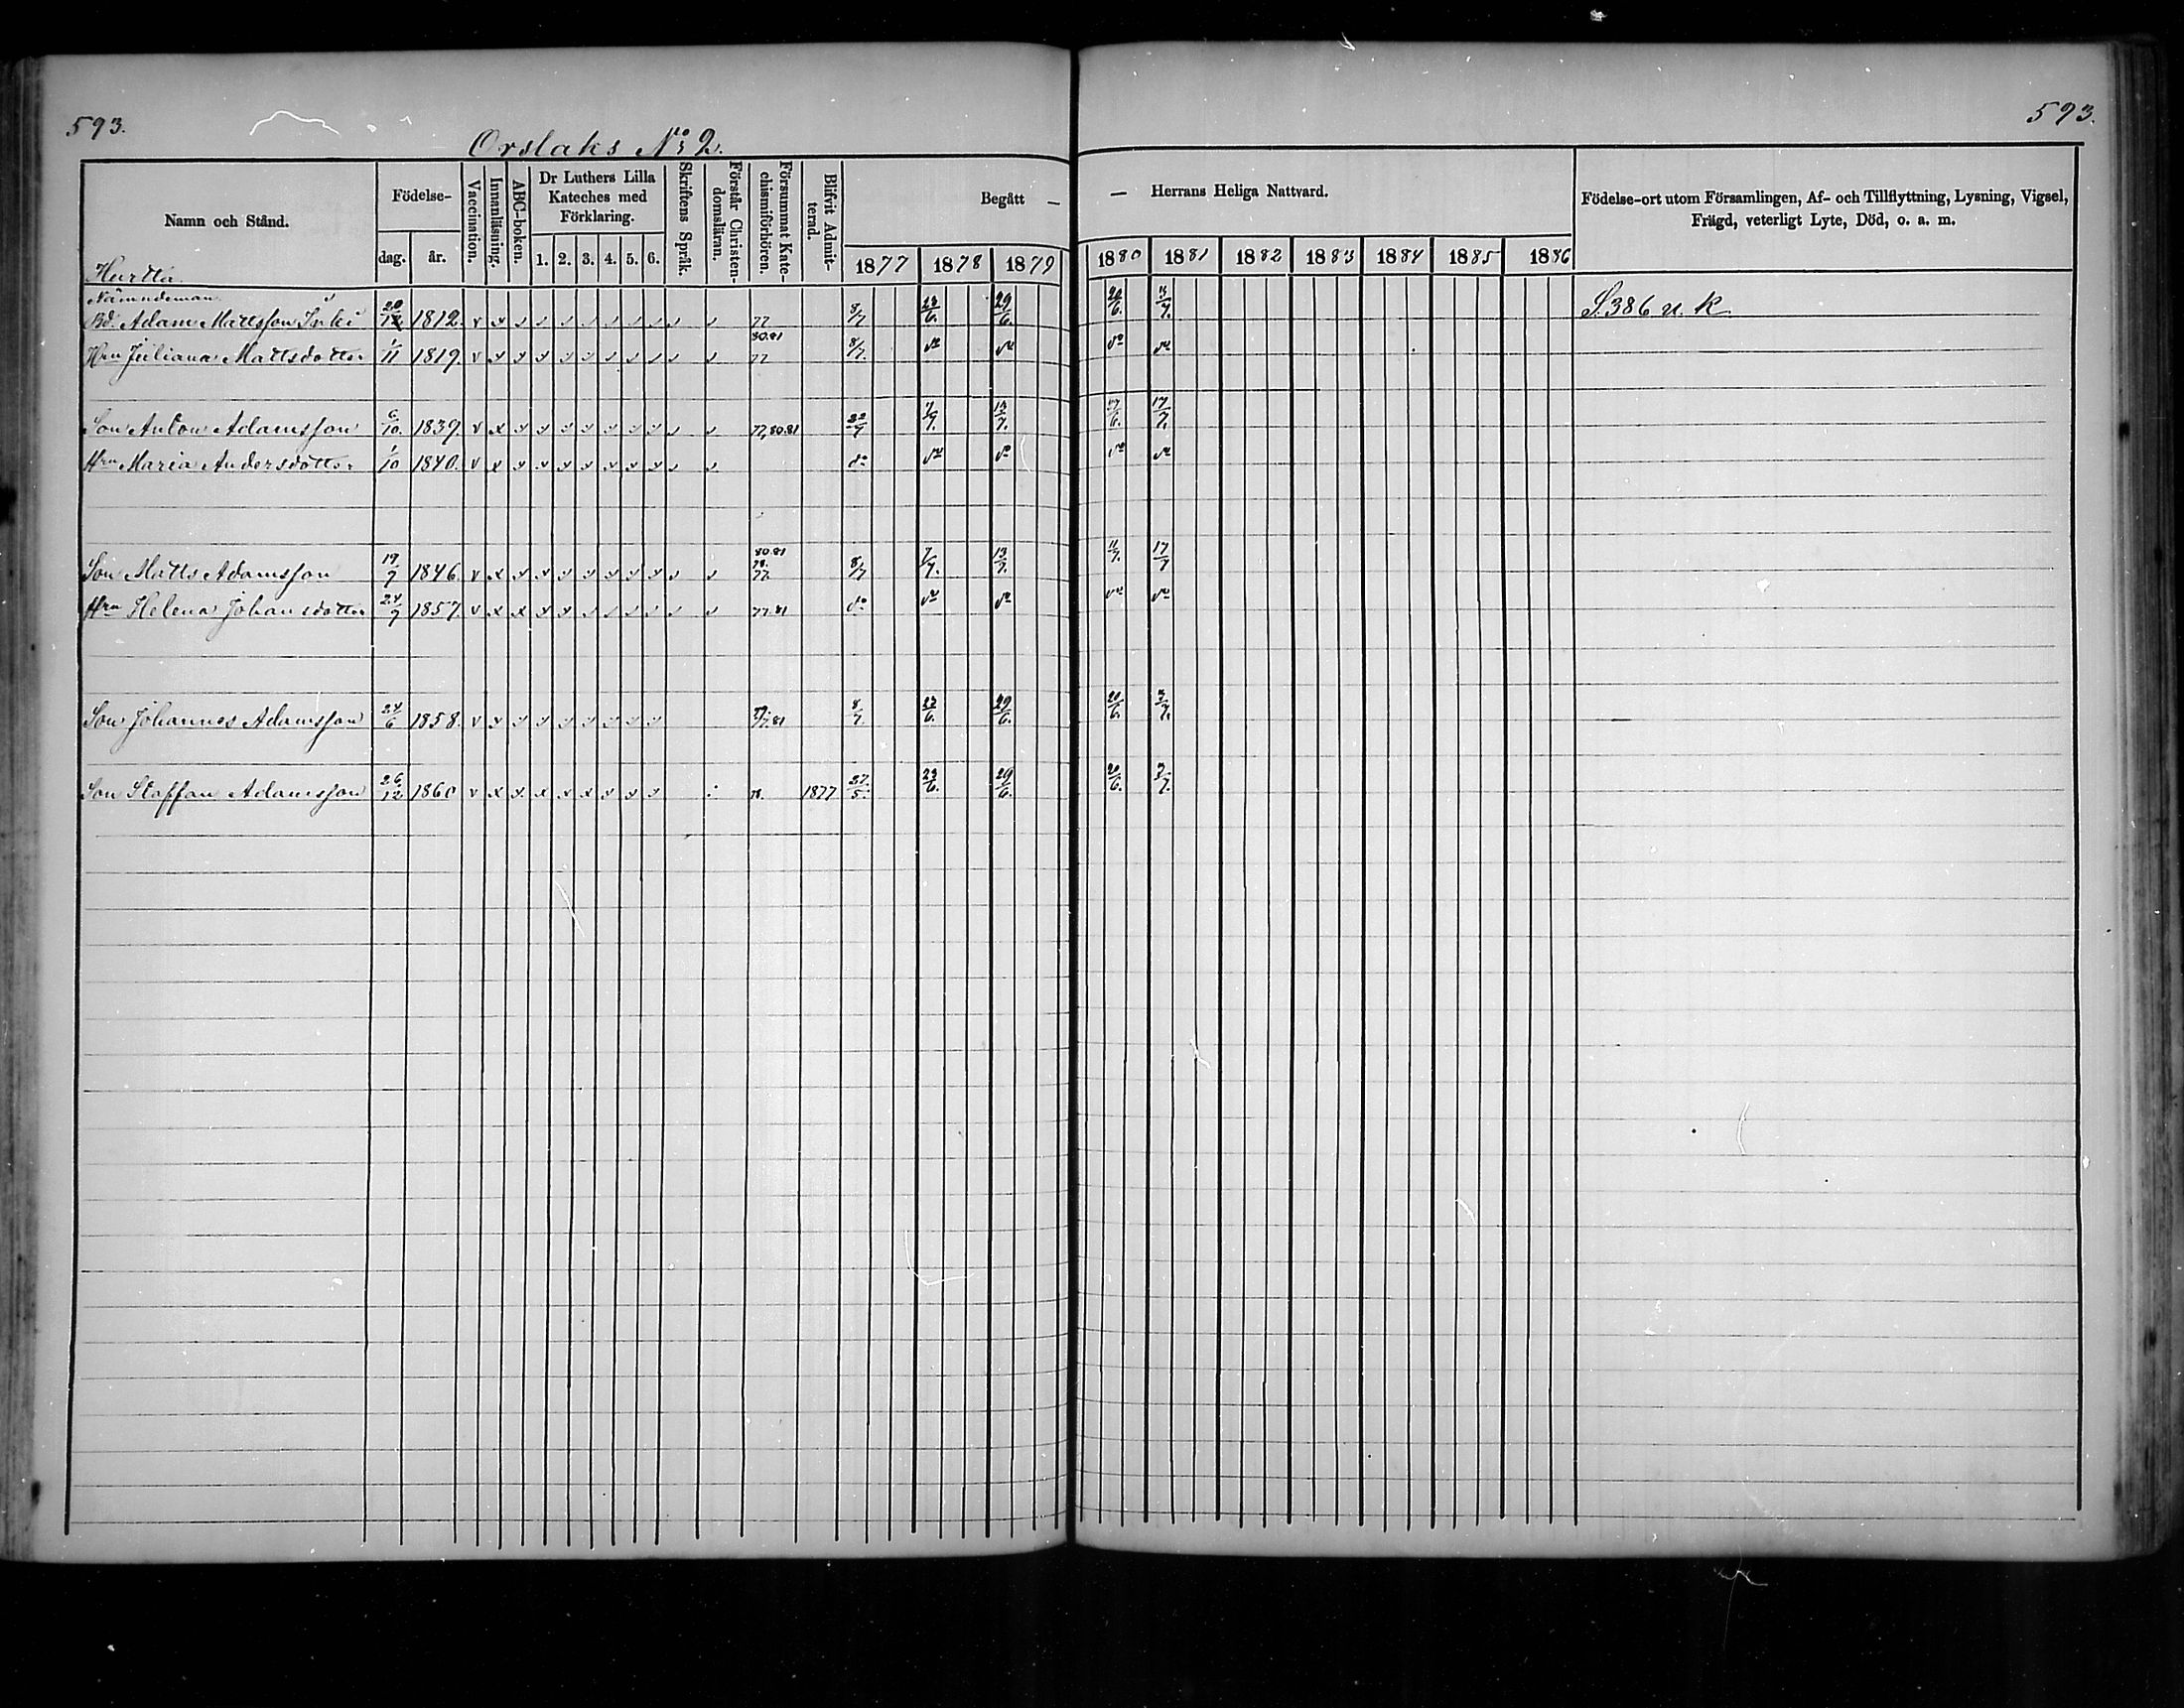 593.
593.
Orslaks No 2.
Namn och Stånd.
Födelse-
dag. år.
Vaccination.
Innanläsning.
ABC-boken.
Dr Luthers Lilla
Kateches med
Förklaring.
1. 2. 3. 4. 5. 6.
Skriftens Språk.
Förstår Christen-
domsläran.
Försummat Kate-
chismiförhören.
Blifvit Admit-
terad.
Begått —
— Herrans Heliga Nattvard.
1877 1878 1879 1880 1881 1882 1883 1884 1885 1886
Födelse-ort utom Församlingen, Af- och Tillflyttning, Lysning, Vigsel,
Frägd, veterligt Lyte, Död, o. a. m.
Hurtta
Nämndeman
Bd. Adam Mattsson 1812. 77 8/7 23/6. 29/6. 20/6. S. 386 u. k.
Hru Juliana Mattsdotter 1/11 1819. 80.81 77 8/7 do do do do
Son Anton Adamsson 6/10. 1839. 77,80.81 7/7. 13/7. 17/7.
Hru Maria Andersdotter 1/10 1840. do do do do do
Son Matts Adamsson 19/7 1846. 80.81 78. 77. 8/7 7/7. 13/7. 11/7. 17/7
Hru Helena Johansdotter 24/9 1857. 77.81 do do do do do
Son Johannes Adamsson 24/6 1858. 8/7. 23/6. 29/6. 20/6. 3/7.
Son Staffan Adamsson 26/12 1860 78. 1877 27/5. 23/6. 29/6. 20/6. 3/7.